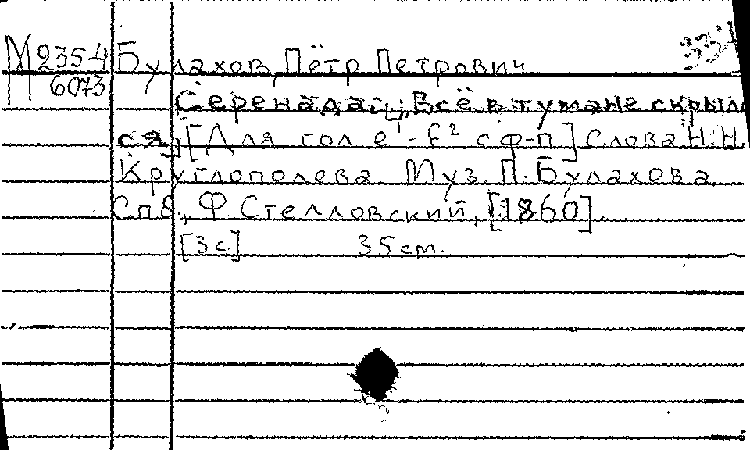 М 2354 Булахов, Пётр Петрович
6073
Серенада: „Всё в тумане скрыло
ся„ [Для гол e¹-f² с ф-п] Слова Н.Н.
Круглополева Муз. П. Булахова
Спб, Ф. Стелловский, [1860]
[3 с] 35 см.